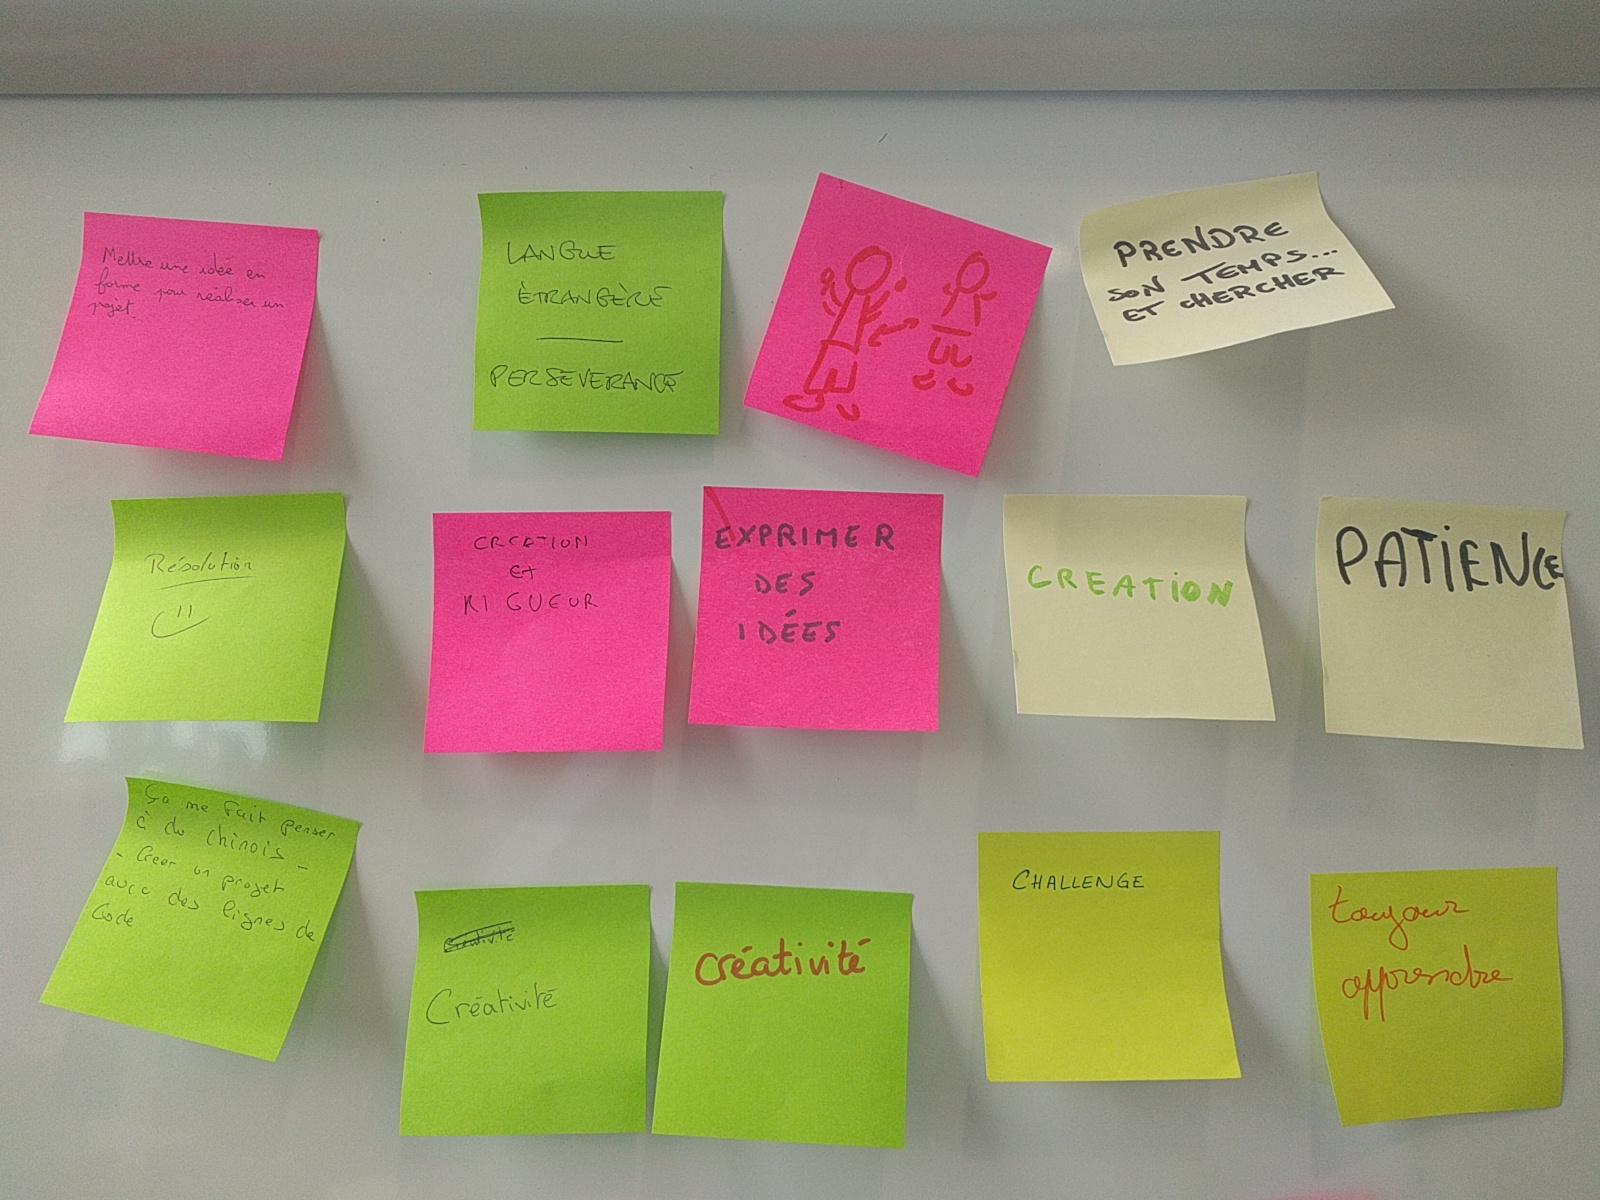 Mettre une idée en
forme pour réaliser un
projet.
LANGUE
ÉTRANGÈRE
PERSEVERANCE
PRENDRE
SON TEMPS...
ET CHERCHER
Résolution
CREATION
ET
RIGUEUR
EXPRIMER
DES
IDÉES
CREATION
PATIENCE
Ça me fait penser
à du chinois -
- Creer un projet
avec des lignes de
Code
Créativité
Créativité
Créativité
CHALLENGE
toujour
apprendre